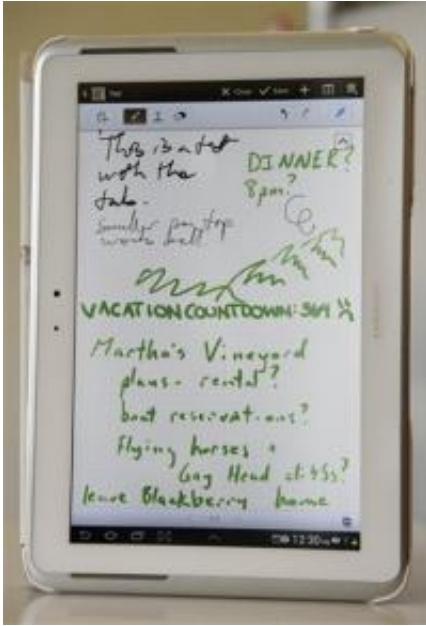 Save
This is a test
with the
tab.
smaller pen top
works well
DINNER?
8pm?
VACATION COUNTDOWN: 364
Martha's Vineyard
plans - rental?
boat reservations?
Flying horses +
Gay Head cliffs?
leave Blackberry home
12:30